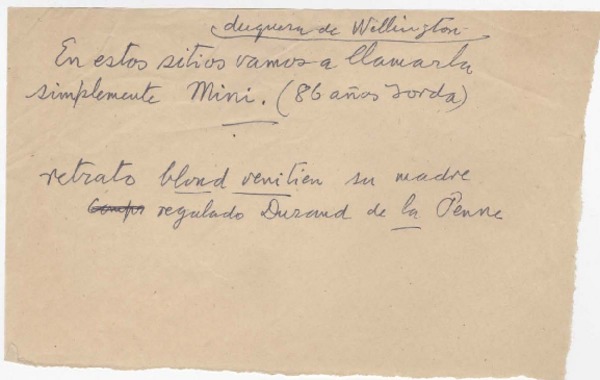 duquesa de Wellington
En estos sitios vamos a llamarla
simplemente Mini. (86 años sorda)
retrato blond venitien su madre
regalado Durand de la Penne